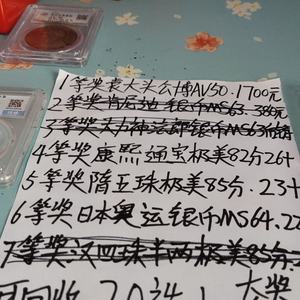 1等奖袁大头公博AV50.1700元
2等奖肯尼迪银币MS63.380元
3等奖大力神法郎银币MS63
4等奖康熙通宝极美82分26+
5等奖隋五珠极美85分.23+
6等奖日本奥运银币MS64.22
7等奖汉四珠半两极美85分.
可回收20 大奖